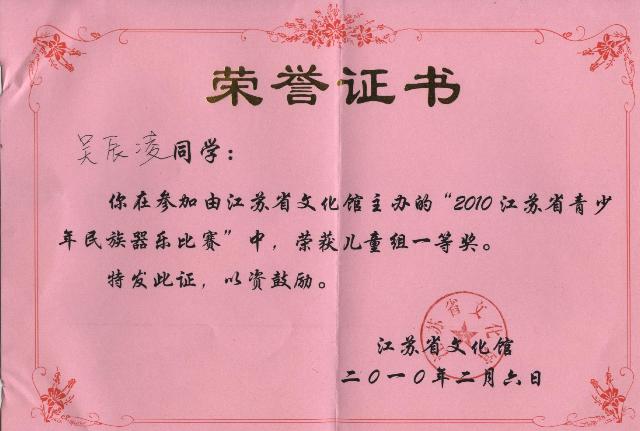 荣誉证书
吴辰凌同学：
你在参加由江苏省文化馆主办的“2010江苏省青少
年民族器乐比赛”中，荣获儿童组一等奖。
特发此证，以资鼓励。
江苏省文化馆
江苏省文化馆
二〇一〇年二月六日